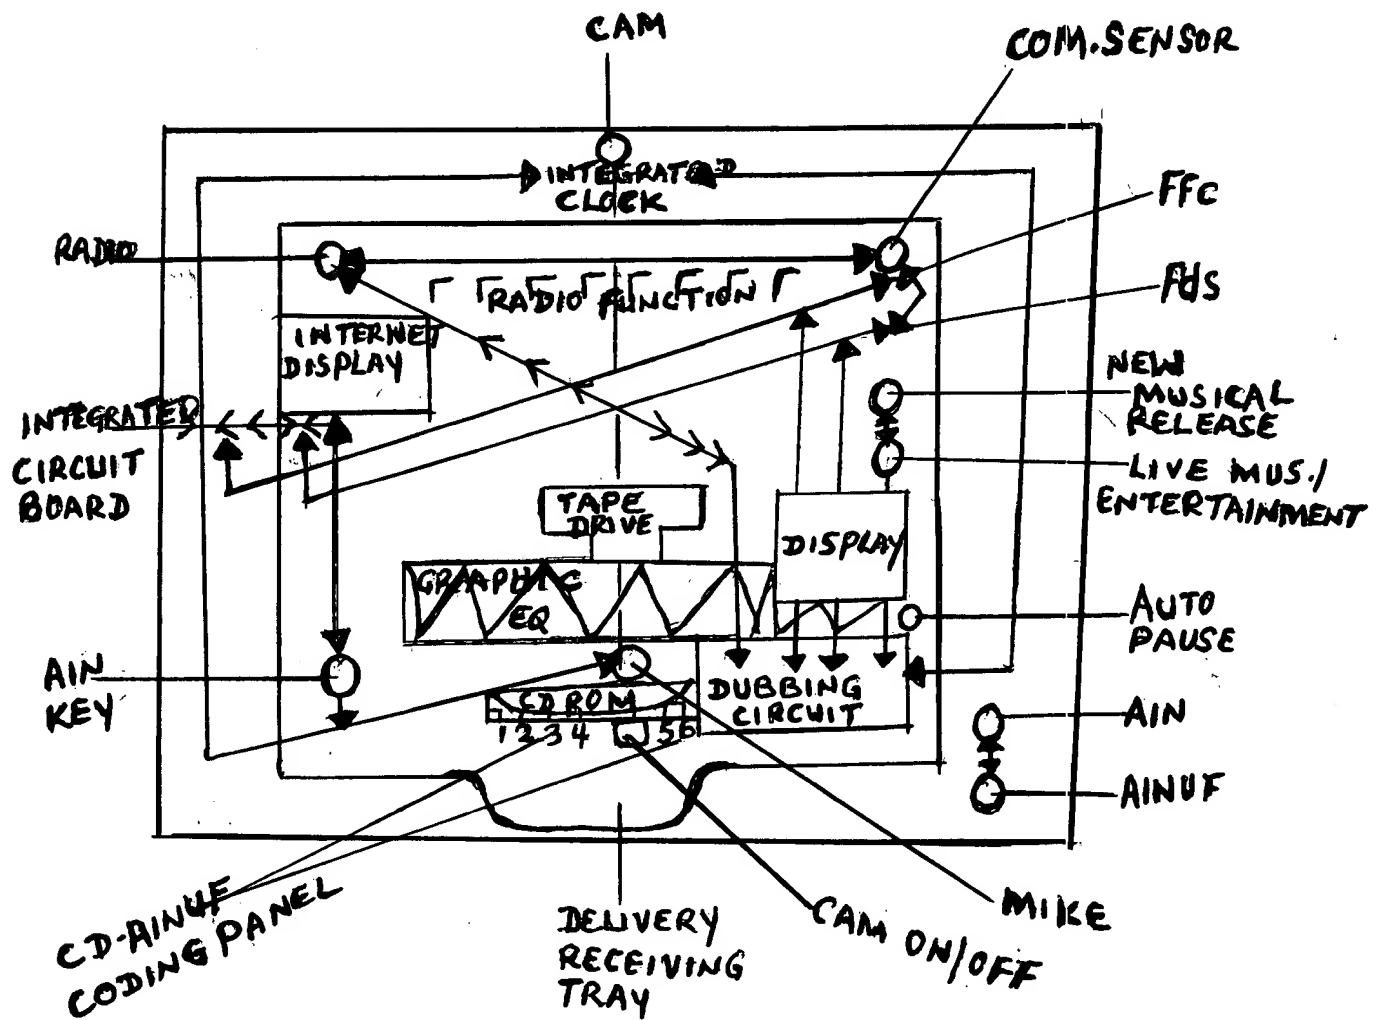 CAM
COM.SENSOR
INTEGRATED
CLOCK
FFC
RADIO
FdS
RADIO FUNCTION
INTERNET
DISPLAY
NEW
MUSICAL
RELEASE
INTEGRATED
CIRCUIT
BOARD
LIVE MUS./
ENTERTAINMENT
TAPE
DRIVE
DISPLAY
GRAPHIC
EQ
AUTO
PAUSE
AIN
KEY
CD ROM
DUBBING
CIRCUIT
1 2 3 4 5 6
AIN
AINUF
CD-AINUF
CODING PANEL
DELIVERY
RECEIVING
TRAY
CAM ON/OFF
MIKE